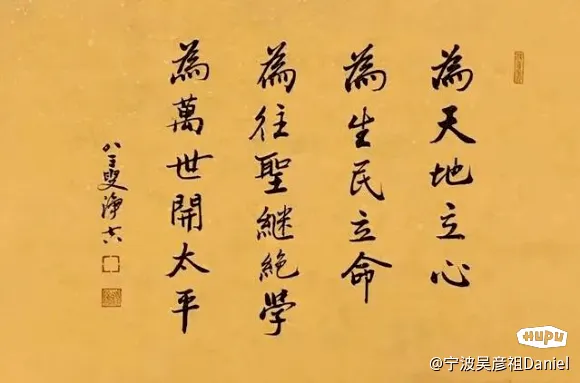 為天地立心
為生民立命
為往聖繼絕學
為萬世開太平
八三叟淨空
HUPU
@宁波吴彦祖Daniel